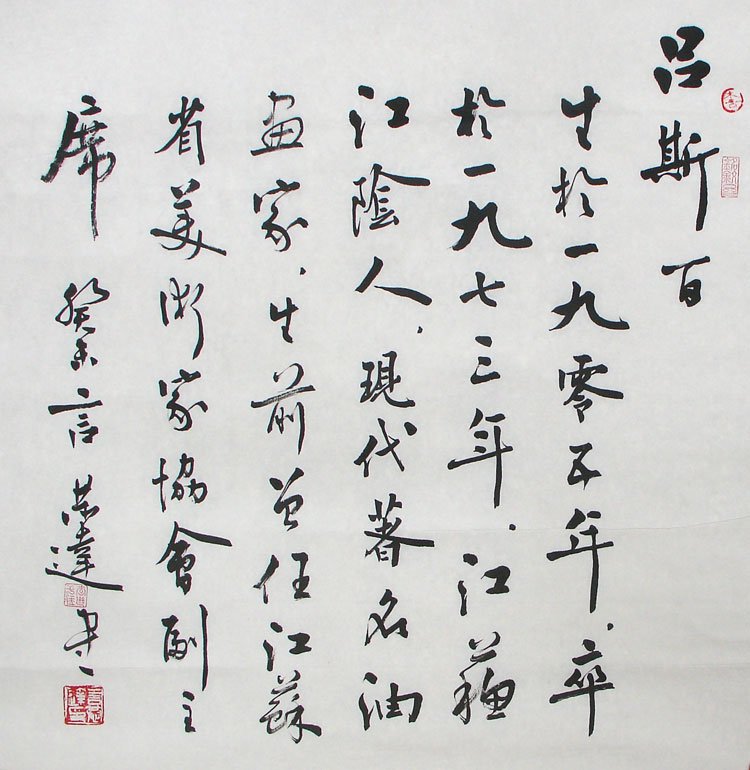 吕斯百
生於一九零五年、卒
於一九七三年、江蘇
江陰人，現代著名油
畫家，生前曾任江蘇
省美術家協會副主
席 癸未言 荣達书